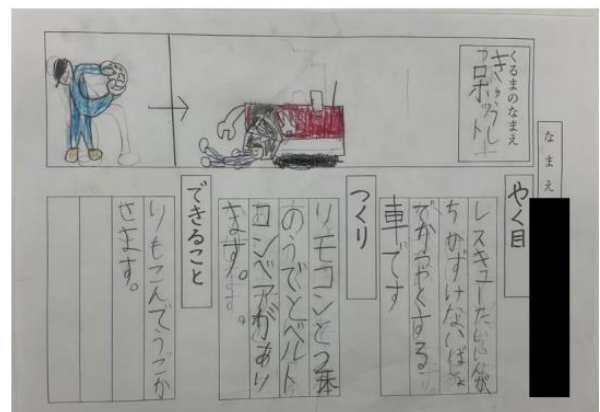 くるまのなまえ
ロボット
なまえ
やく目
レスキューたいいんが
ちかずけないばしょ
でかつやくする
車です
つくり
リモコンと2本
のうでとベルト
コンベアがあり
ます。
できること
りもこんでうごか
せます。